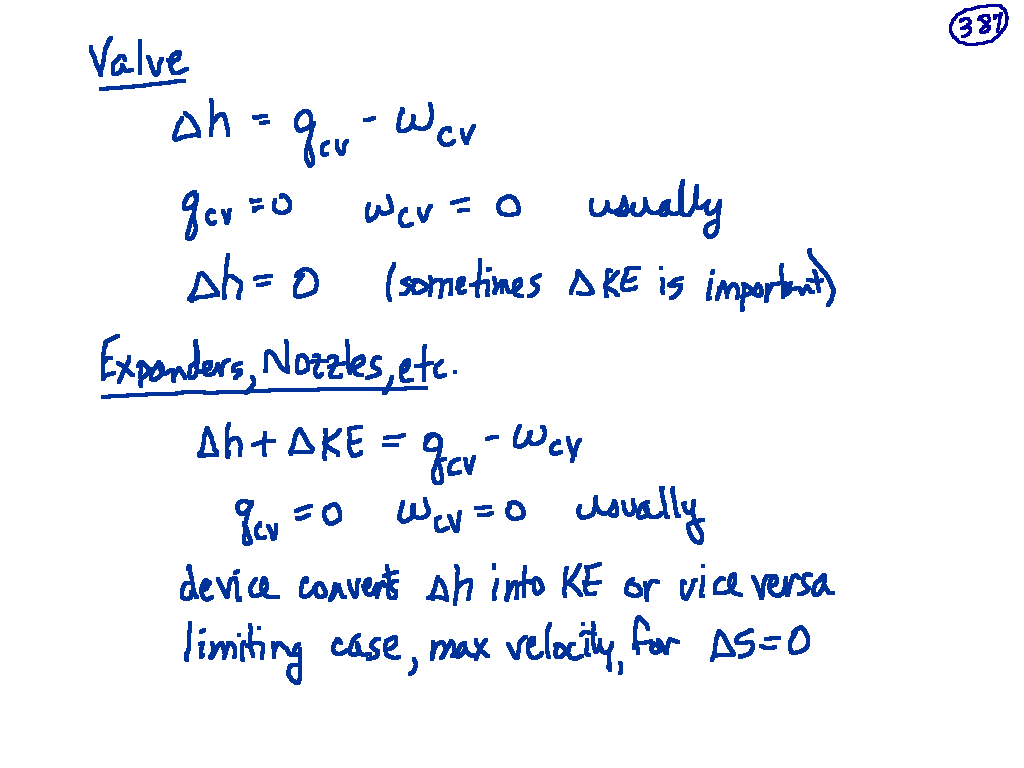 387
Valve
Δh = q_cv - w_cv
q_cv = 0 w_cv = 0 usually
Δh = 0 (sometimes Δ KE is important)
Expanders, Nozzles, etc.
Δh + Δ KE = q_cv - w_cv
q_cv = 0 w_cv = 0 usually
device converts Δh into KE or vice versa
limiting case, max velocity, for ΔS = 0